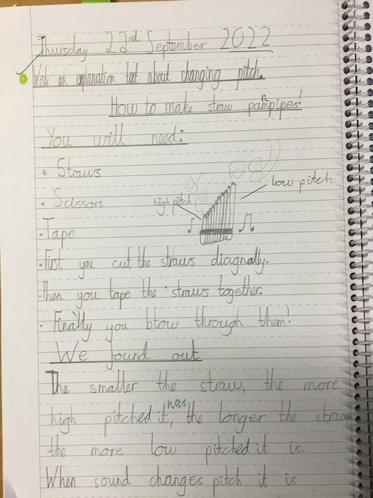 Thursday 22nd September 2022
Write an explanation text about changing pitch.
How to make straw panpipes!
You will need:
• Straws
• Scissors
high pitch
low pitch
• Tape
• First you cut the straws diagnally.
• Then you tape the straws together.
• Finally you blow through them!
We found out
The smaller the straw, the more
high pitched it was, the longer the straw
the more low pitched it is.
When sound changes pitch it is